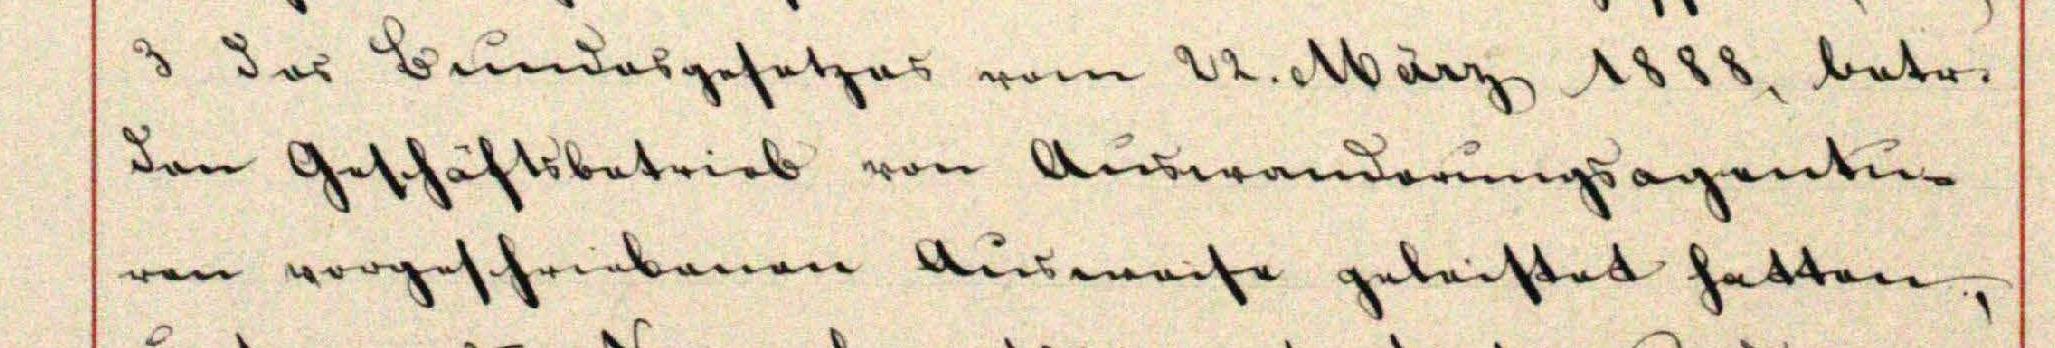 3 des Bundesgesetzes vom 22. März 1888, betr.
den Geschäftsbetrieb von Auswanderungsagentu-
ren vorgeschriebenen Ausweise geleistet hatten,